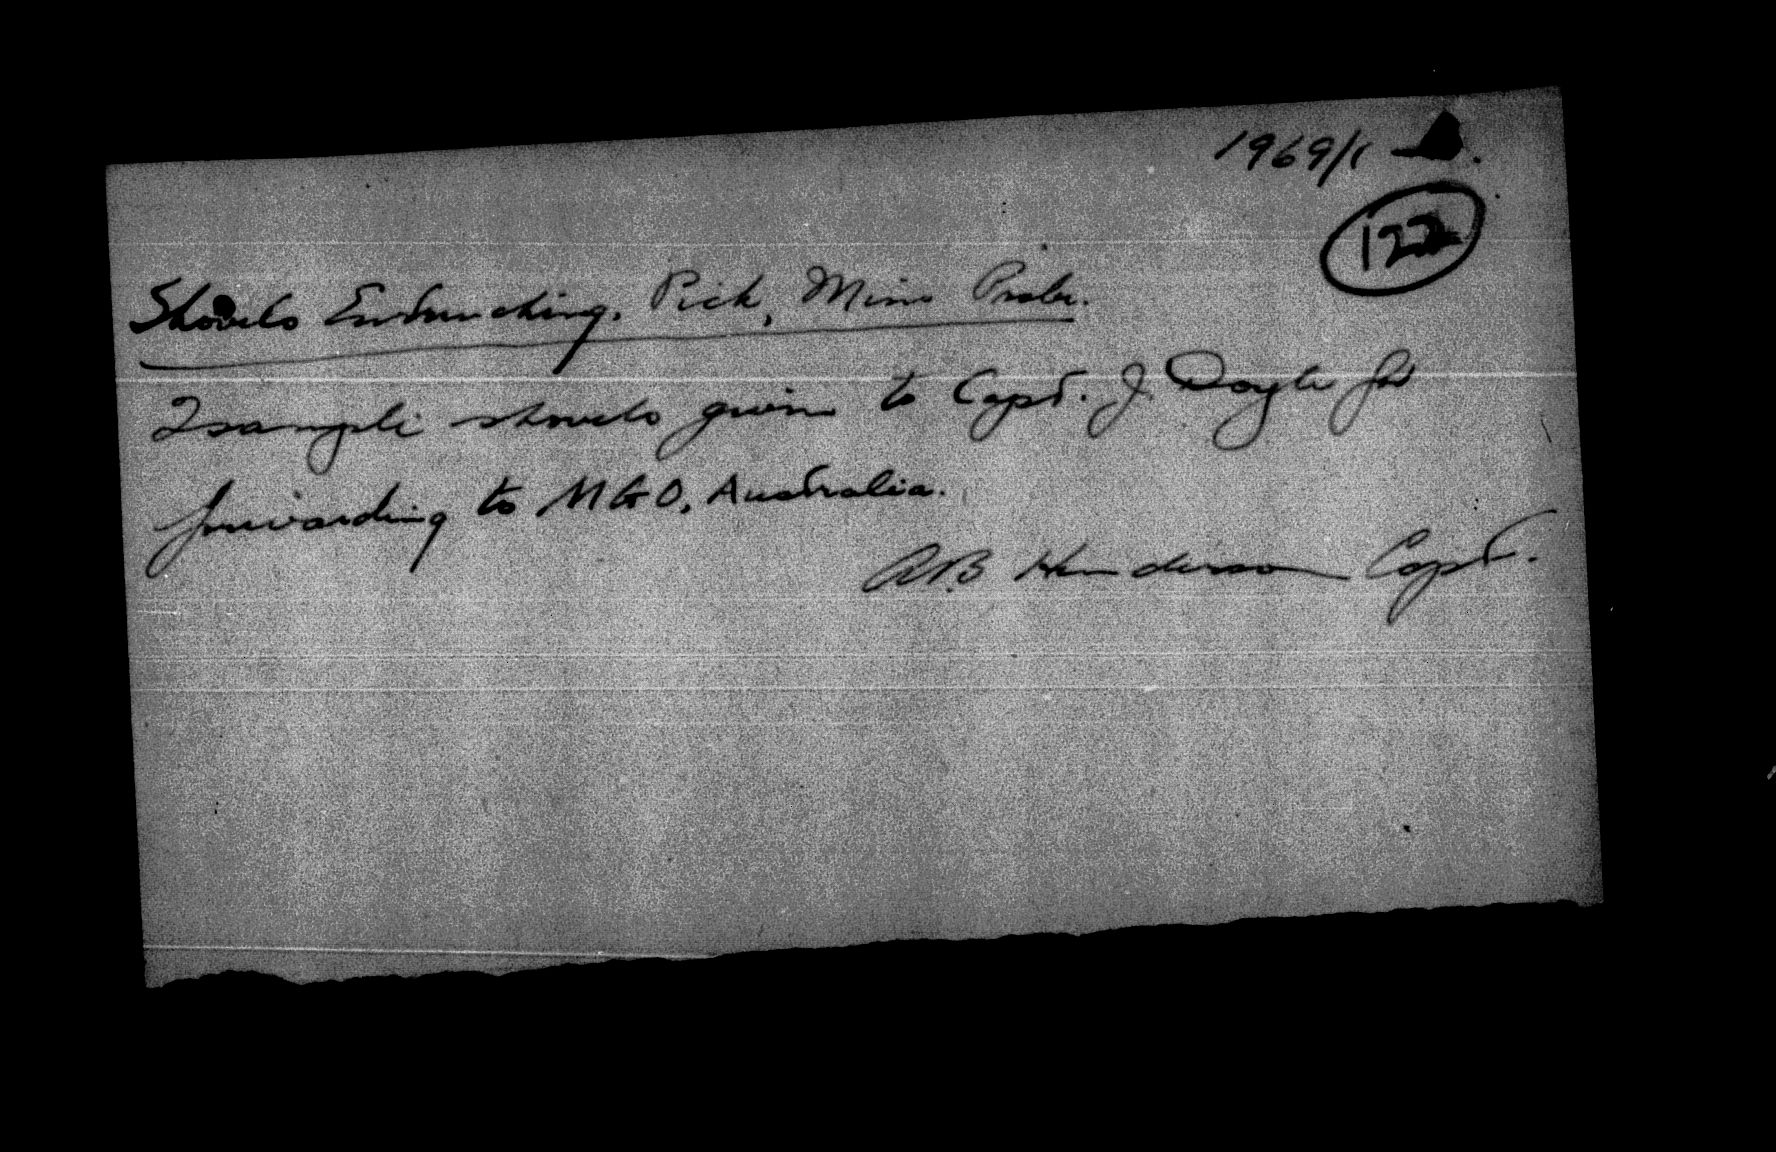 1969/1
122
Shovels Entrenching, Pick, Mine Probe.
2 sample shovels given to Capt. J. Doyle for
forwarding to MGO, Australia.
A.B Henderson Capt.